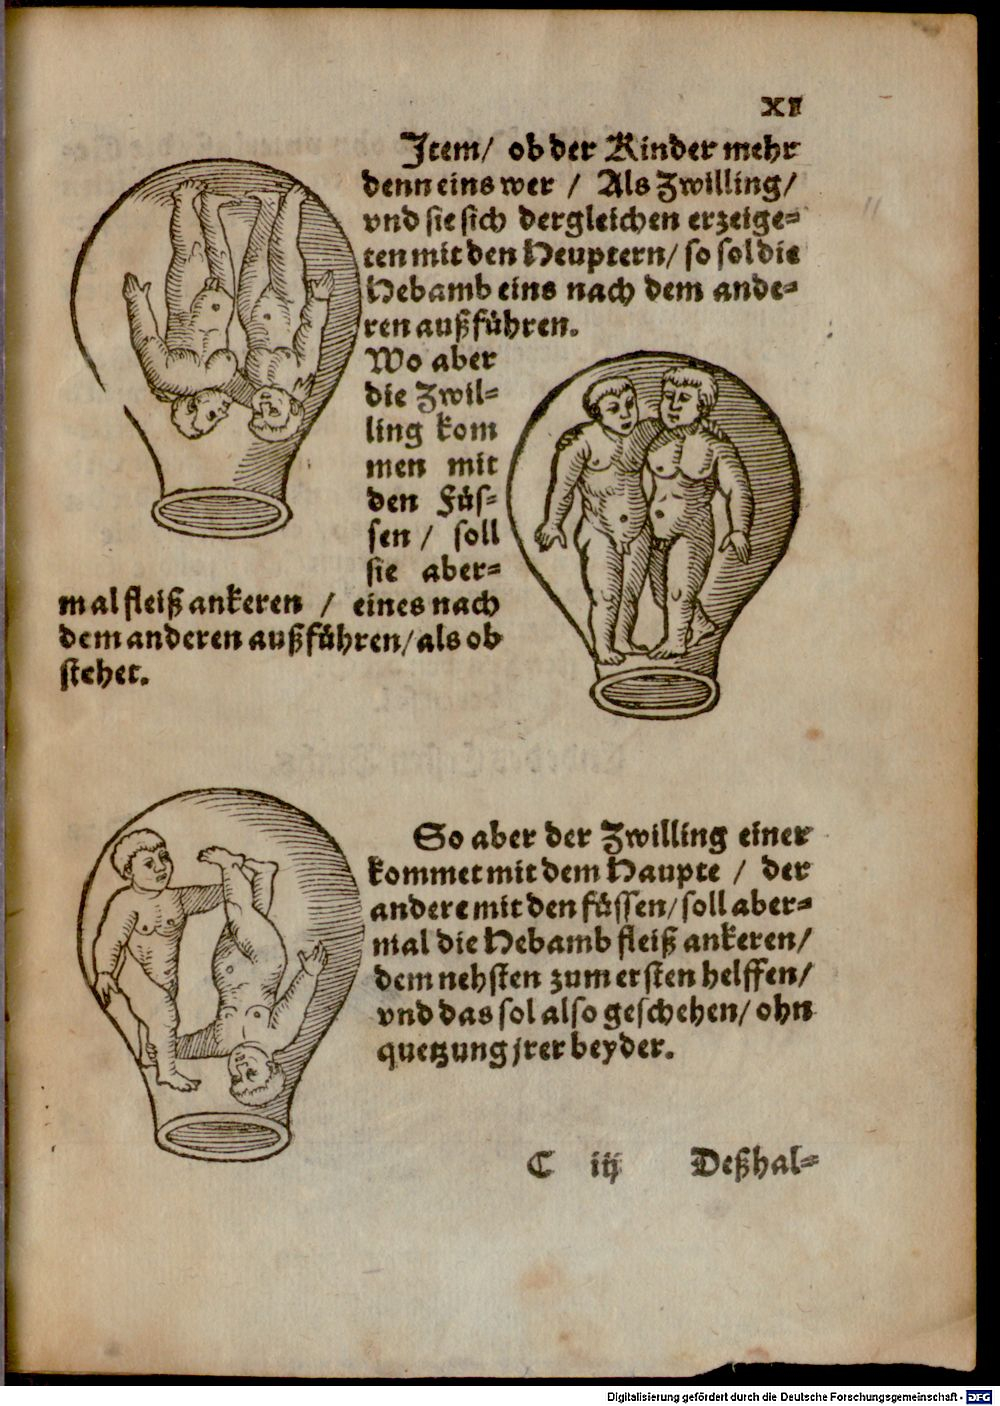 XI
Item/ ob der Kinder mehr
denn eins wer / Als Zwilling/
vnd sie sich dergleichen erzeige=
ten mit den Heuptern/ so sol die
Hebamb eins nach dem ande=
ren außführen.
Wo aber
die Zwil=
ling kom
men mit
den Füs=
sen / soll
sie aber=
mal fleiß ankeren / eines nach
dem anderen außführen/ als ob
stehet.
So aber der Zwilling einer
kommet mit dem Haupte / der
andere mit den füssen/ soll aber=
mal die Hebamb fleiß ankeren/
dem nehsten zum ersten helffen/
vnd das sol also geschehen/ ohn
quetzung jrer beyder.
C iij Deßhal=
Digitalisierung gefördert durch die Deutsche Forschungsgemeinschaft - DFG